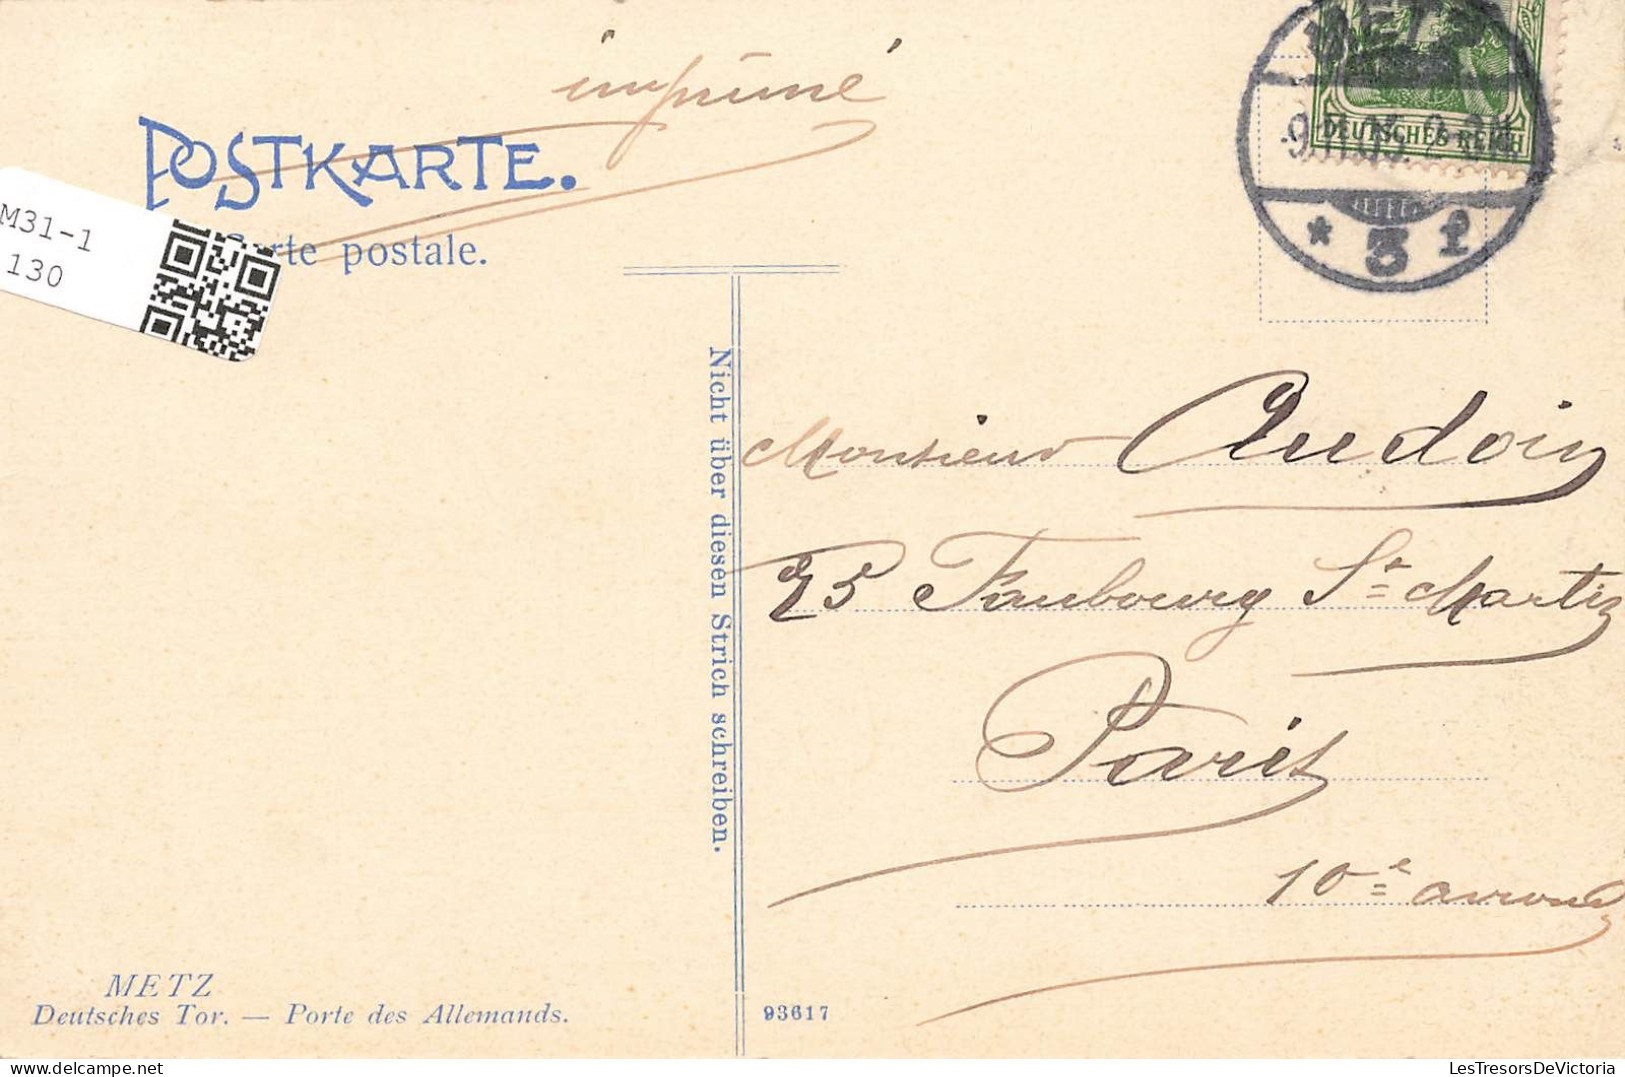 imprimé
POSTKARTE.
Carte postale.
M31-1
130
METZ
DEUTSCHES REICH
* 3 f
Nicht über diesen Strich schreiben.
Monsieur Audoin
Faubourg St Martin
Paris
10e
METZ
Deutsches Tor. — Porte des Allemands.
93617
LesTresorsDeVictoria